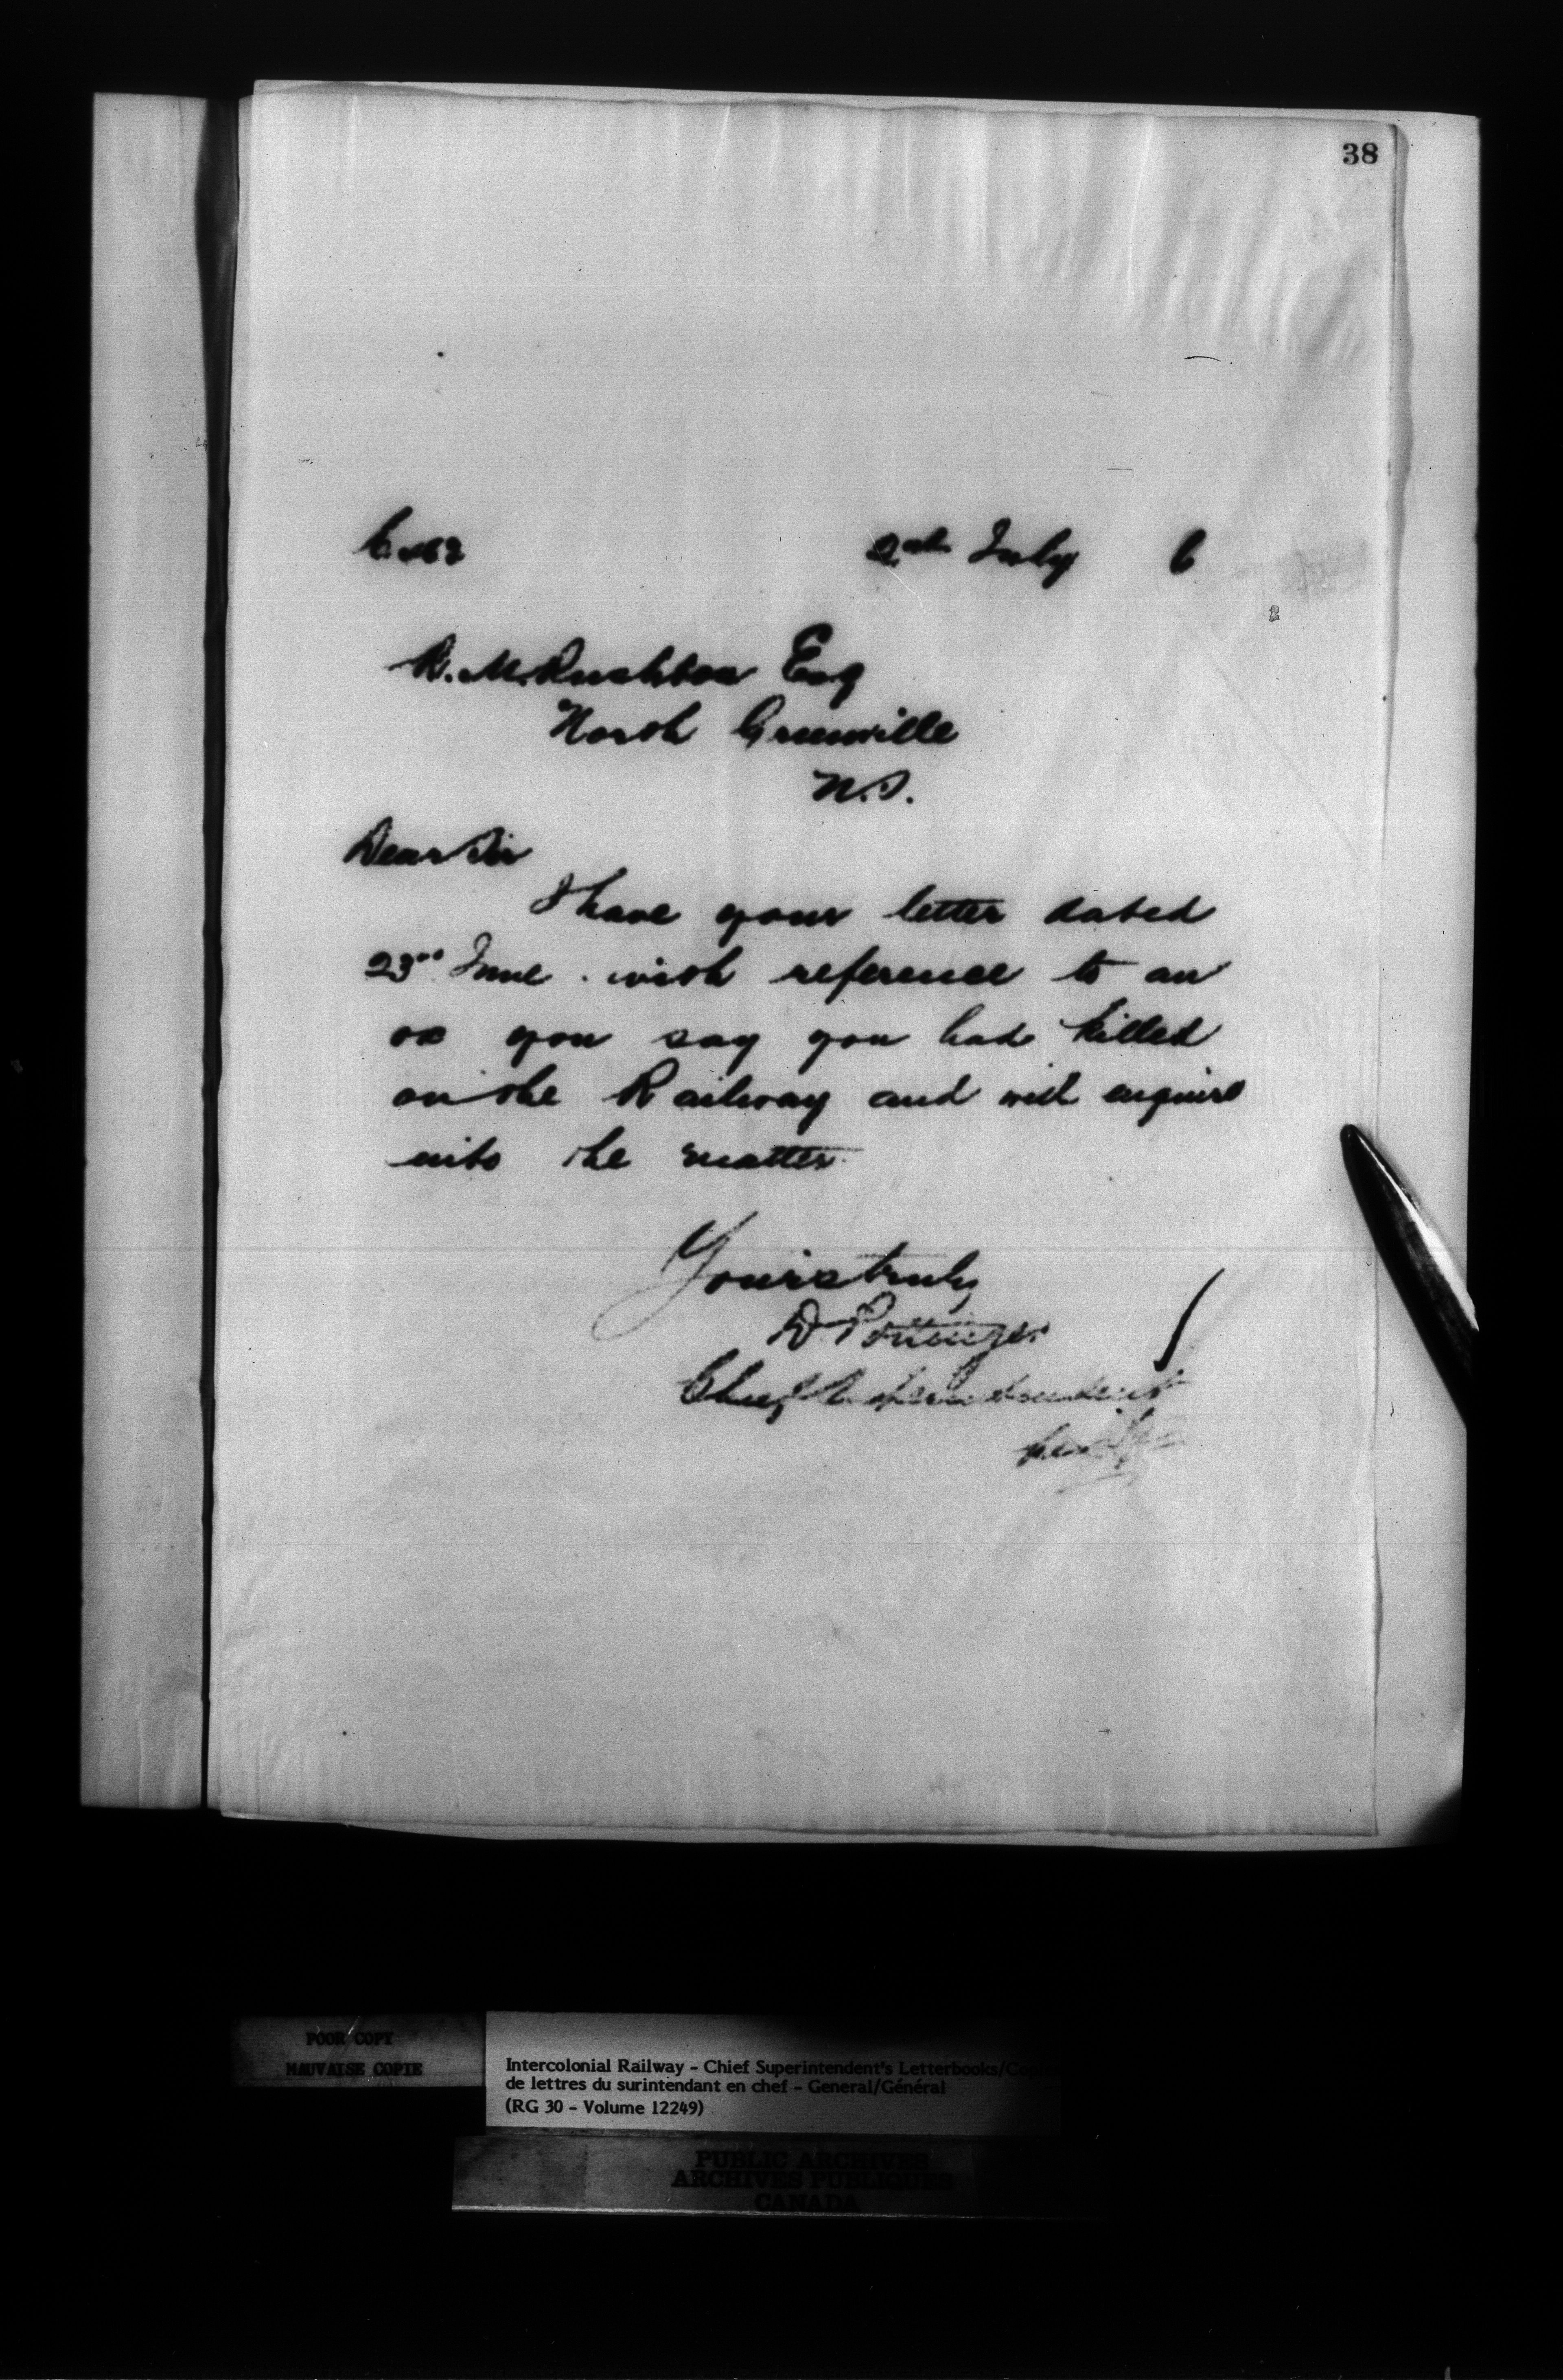 38
2nd July 6
R. M. Rushton Esq
North Greenville
N.S.
Dear Sir
I have your letter dated
23rd June. with reference to an
ox you say you had killed
on the Railway and will enquire
into the matter.
Yours truly
D Pottinger
Chief Superintendent
POOR COPY
MAUVAISE COPIE
Intercolonial Railway - Chief Superintendent's Letterbooks/
de lettres du surintendant en chef - General/Général
(RG 30 - Volume 12249)
PUBLIC ARCHIVES
ARCHIVES PUBLIQUES
CANADA